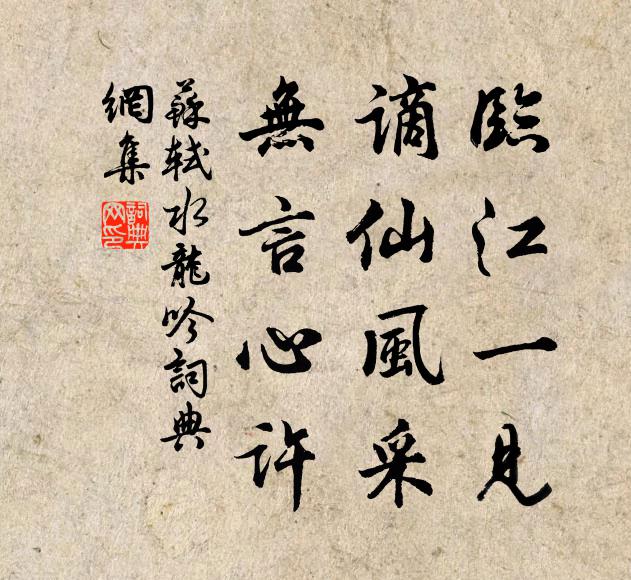 臨江一見
謫仙風采
無言心許
蘇軾水龍吟詞典
網集
詞典
网印